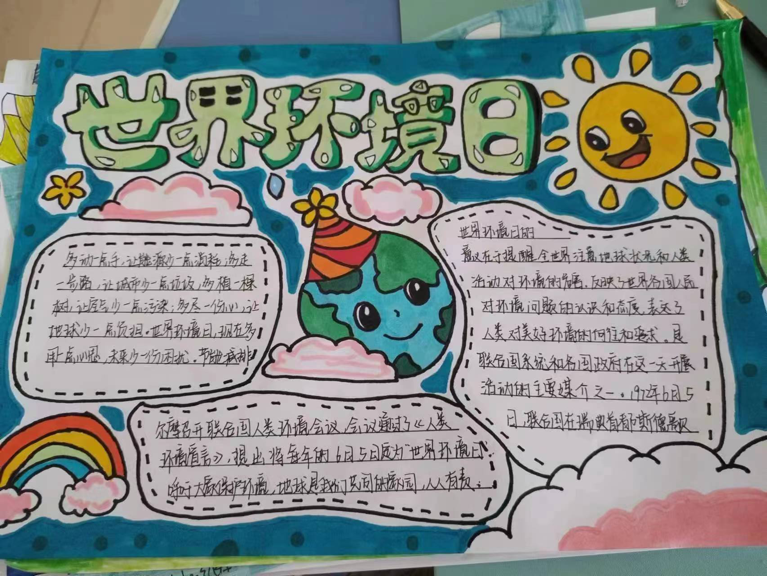 世界环境日
多动一点手,让能源少一点消耗,多走
一步路,让城市少一点垃圾,多植一棵
树,让空气少一点污染,多尽一份心,让
地球少一点负担。世界环境日,现在多
一点心思,未来少一份困扰,节能减排
世界环境日的
意义在于提醒全世界注意地球状况和人类
活动对环境的危害。反映了世界各国人民
对环境问题的认识和态度,表达了
人类对美好环境的向往和追求。是
联合国系统和各国政府在这一天开展
活动的主要媒介之一。1972年6月5
日,联合国在瑞典首都斯德哥
尔摩召开联合国人类环境会议,会议通过了《人类
环境宣言》,提出将每年的6月5日定为"世界环境日"
大家保护环境,地球是我们共同的家园,人人有责。